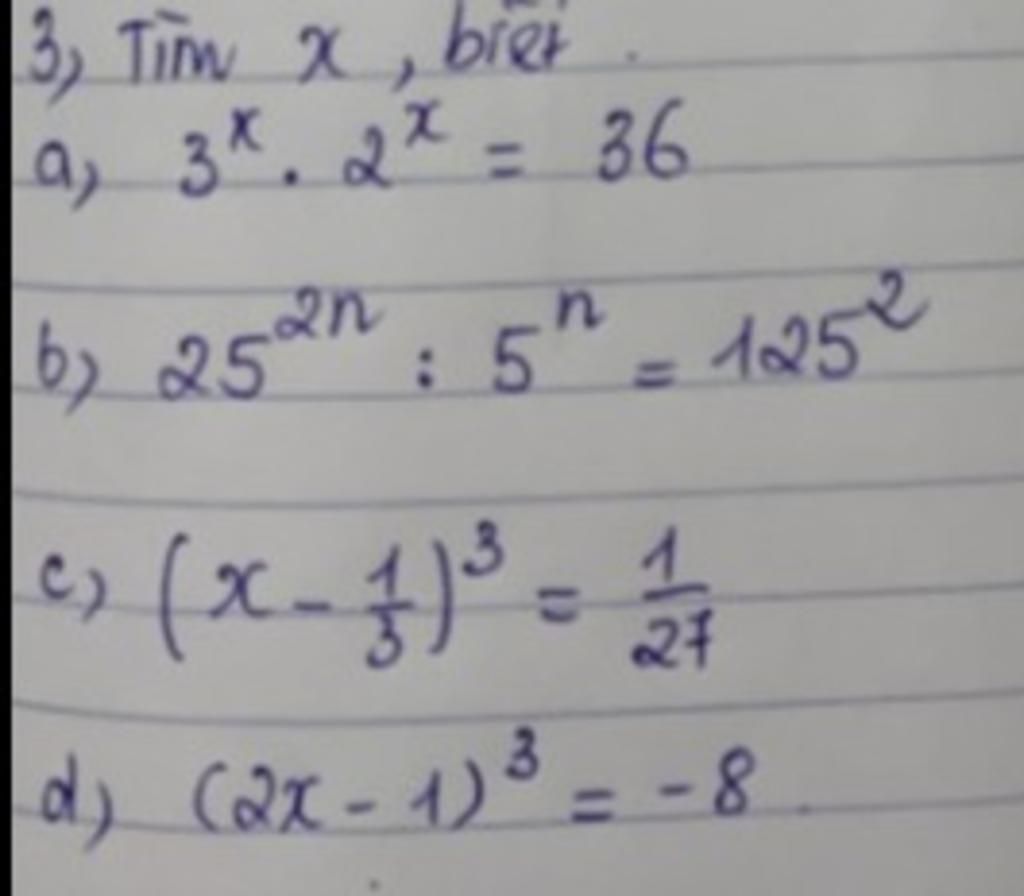 3, Tìm x, biết.
a, 3^x . 2^x = 36
b) 25^2n : 5^n = 125^2
c) (x - 1/3)^3 = 1/27
d) (2x - 1)^3 = -8